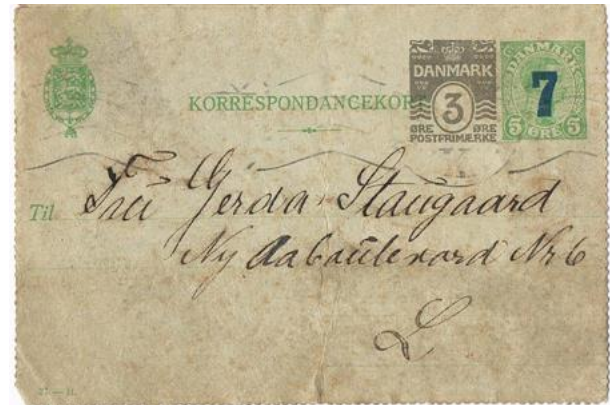 KORRESPONDANCEKORT
DANMARK
3
ØRE ØRE
POSTFRIMÆRKE
DANMARK
7
5 ØRE 5
Til Fru Gerda Staugaard
Ny Aaboulevard Nr 6
L
37 — H.